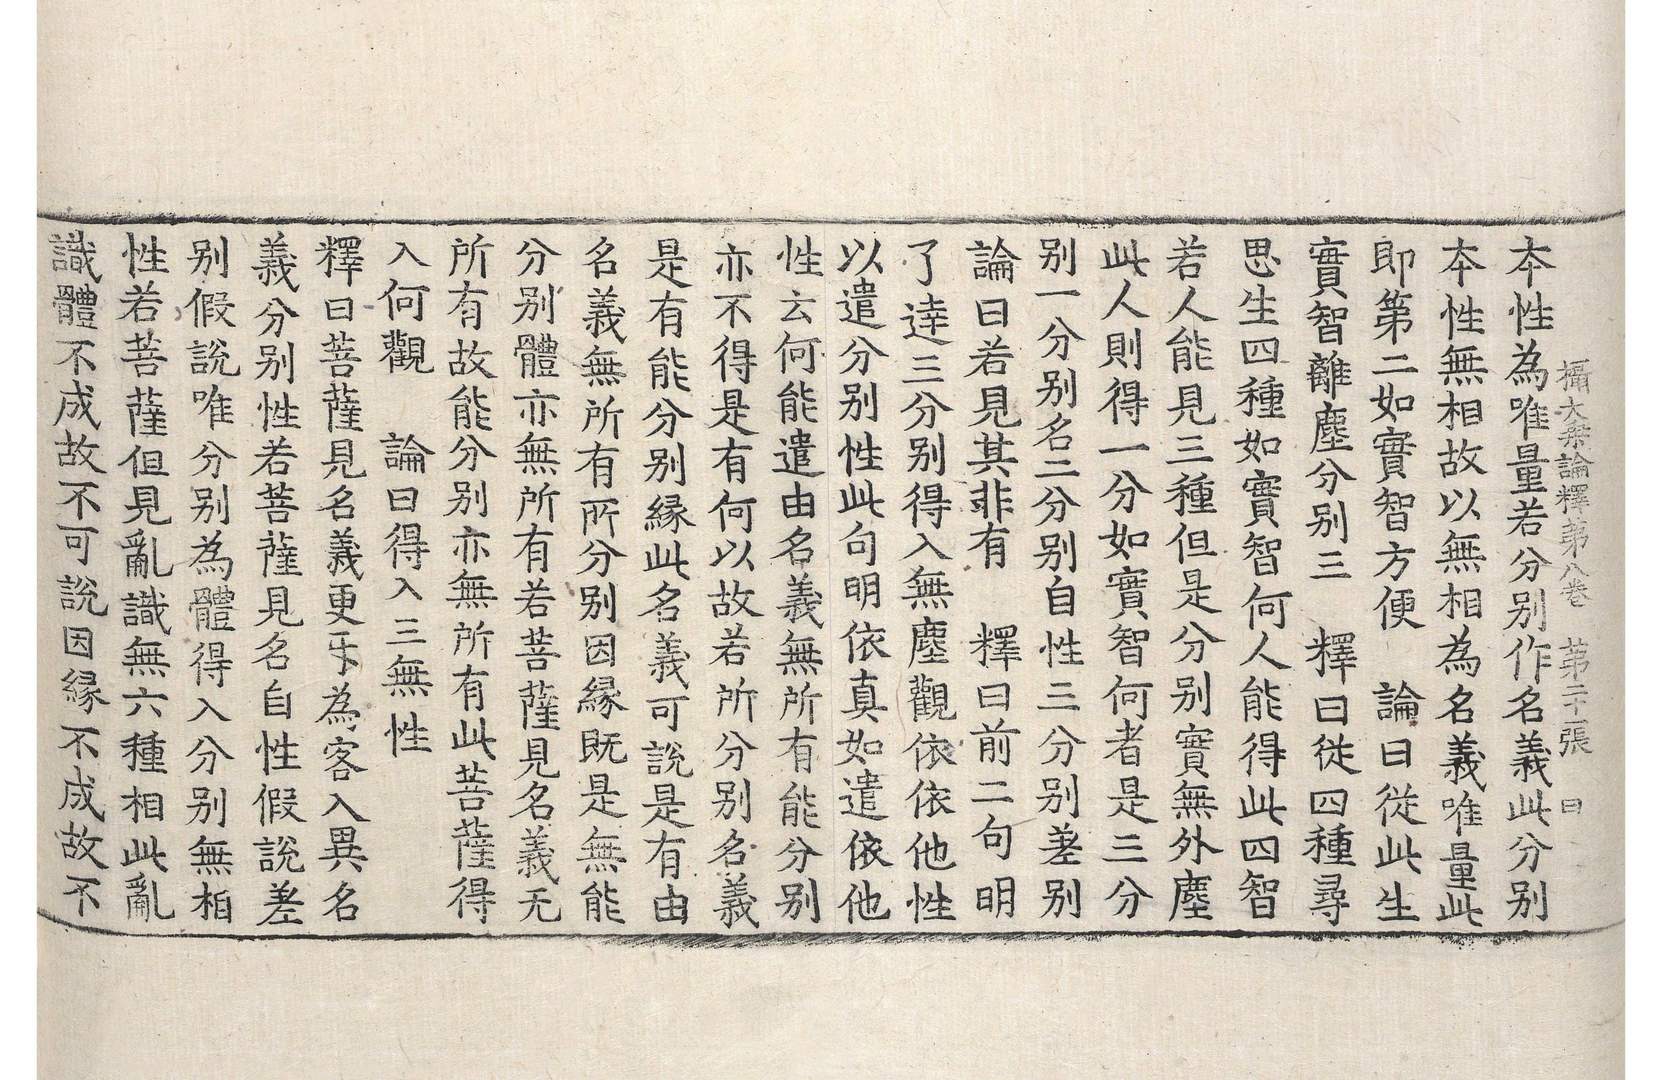 攝大乗論釋第八卷　第二十張　曰
本性為唯量若分别作名義此分别
本性無相故以無相為名義唯量此
即第二如實智方便　論曰從此生
實智離塵分别三　釋曰從四種尋
思生四種如實智何人能得此四智
若人能見三種但是分别實無外塵
此人則得一分如實智何者是三分
别一分别名二分别自性三分别差别
論曰若見其非有　釋曰前二句明
了達三分别得入無塵觀依依他性
以遣分别性此句明依真如遣依他
性云何能遣由名義無所有能分别
亦不得是有何以故若所分别名義
是有能分别縁此名義可說是有由
名義無所有所分别因縁既是無能
分别體亦無所有若菩薩見名義无
所有故能分别亦無所有此菩薩得
入何觀　論曰得入三無性
釋曰菩薩見名義更㸦為客入異名
義分别性若菩薩見名自性假說差
别假說唯分别為體得入分别無相
性若菩薩但見亂識無六種相此亂
識體不成故不可說因縁不成故不